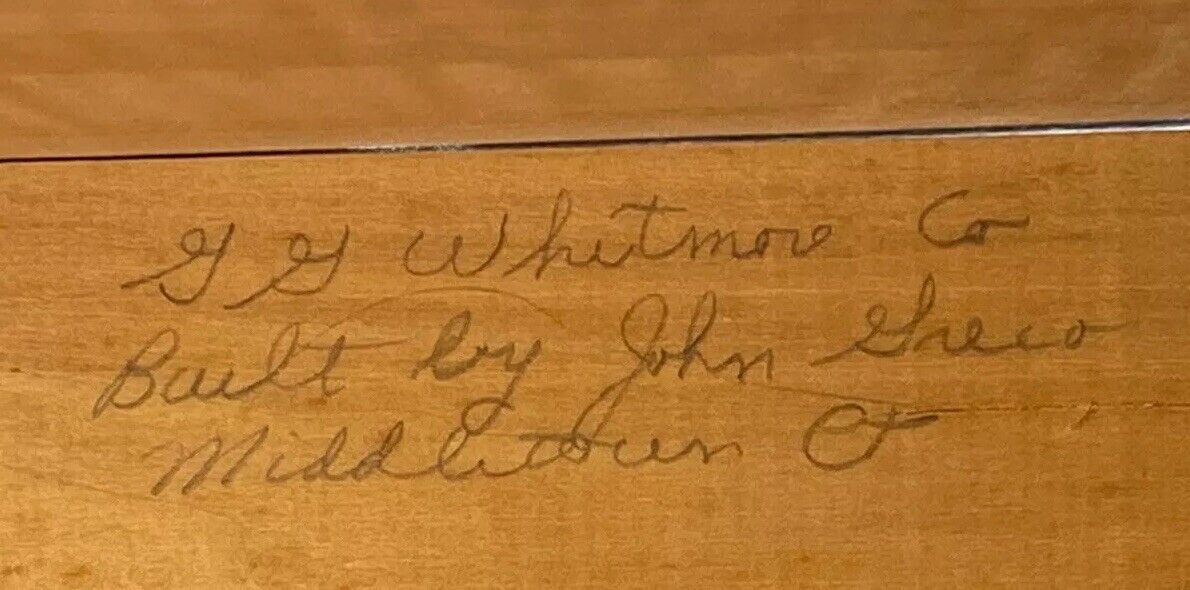 G G Whitmore Co
Built by John Greco
Middletown Ct